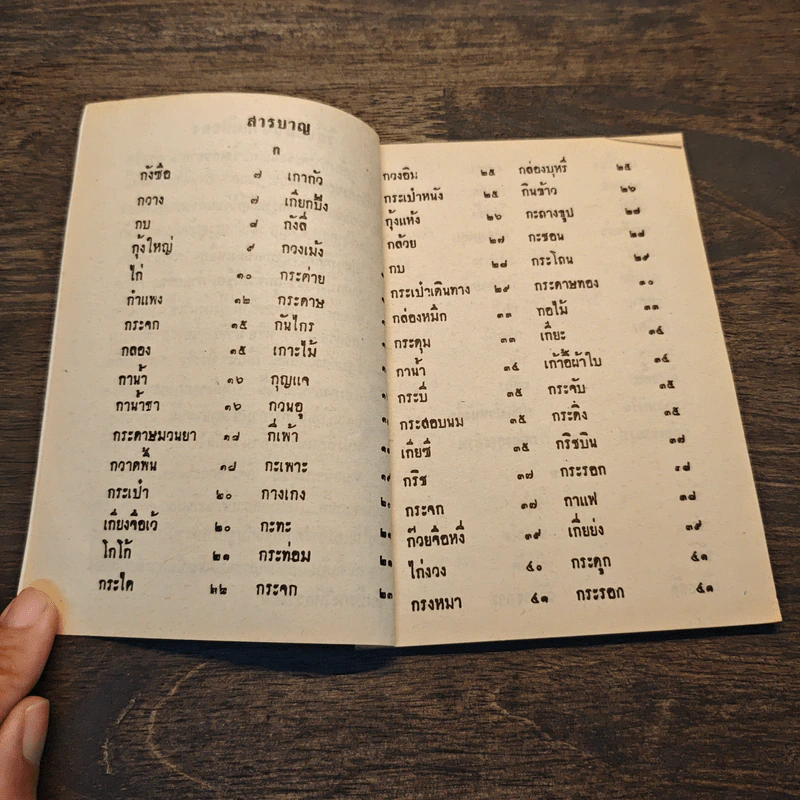 สารบาญ
ก
กังซือ ๗ เกากัว
กวาง ๗ เกี๊ยกบั๊ง
กบ ๘ กังลี่
กุ้งใหญ่ ๙ กวงเม้ง
ไก่ ๑๐ กระต่าย
กำแพง ๑๒ กระดาษ
กระจก ๑๕ กันไกร
กลอง ๑๕ เกาะไม้
กาน้ำ ๑๖ กุญแจ
กาน้ำชา ๑๖ กวนอู
กระดาษมวนยา ๑๘ กี่เพ้า
กวาดพื้น ๑๘ กะเพาะ
กระเป๋า ๒๐ กางเกง
เกี่ยงจือเว้ ๒๐ กะทะ
โกโก้ ๒๑ กระท่อม ๒๑
กระได ๒๒ กระจก ๒๓
กวงอิม ๒๕ กล่องบุหรี่ ๒๕
กระเป๋าหนัง ๒๕ กินข้าว ๒๖
กุ้งแห้ง ๒๖ กะถางธูป ๒๗
กล้วย ๒๗ กะชอน ๒๘
กบ ๒๘ กระโถน ๒๙
กระเป๋าเดินทาง ๒๙ กระดาษทอง ๓๐
กล่องหมึก ๓๓ กอไม้ ๓๓
กระดุม ๓๓ เกี๊ยะ ๓๔
กาน้ำ ๓๔ เก้าอี้ผ้าใบ ๓๔
กระบี่ ๓๕ กระจับ ๓๕
กระสอบนม ๓๕ กระดิ่ง ๓๕
เกี่ยซี่ ๓๕ กริชบิน ๓๗
กริช ๓๗ กระรอก ๓๘
กระจก ๓๗ กาแฟ ๓๘
ก๊วยจือหงี ๓๙ เกี่ยย่ง ๓๙
ไก่งวง ๔๐ กระดูก ๔๑
กรงหมา ๔๑ กระรอก ๔๑